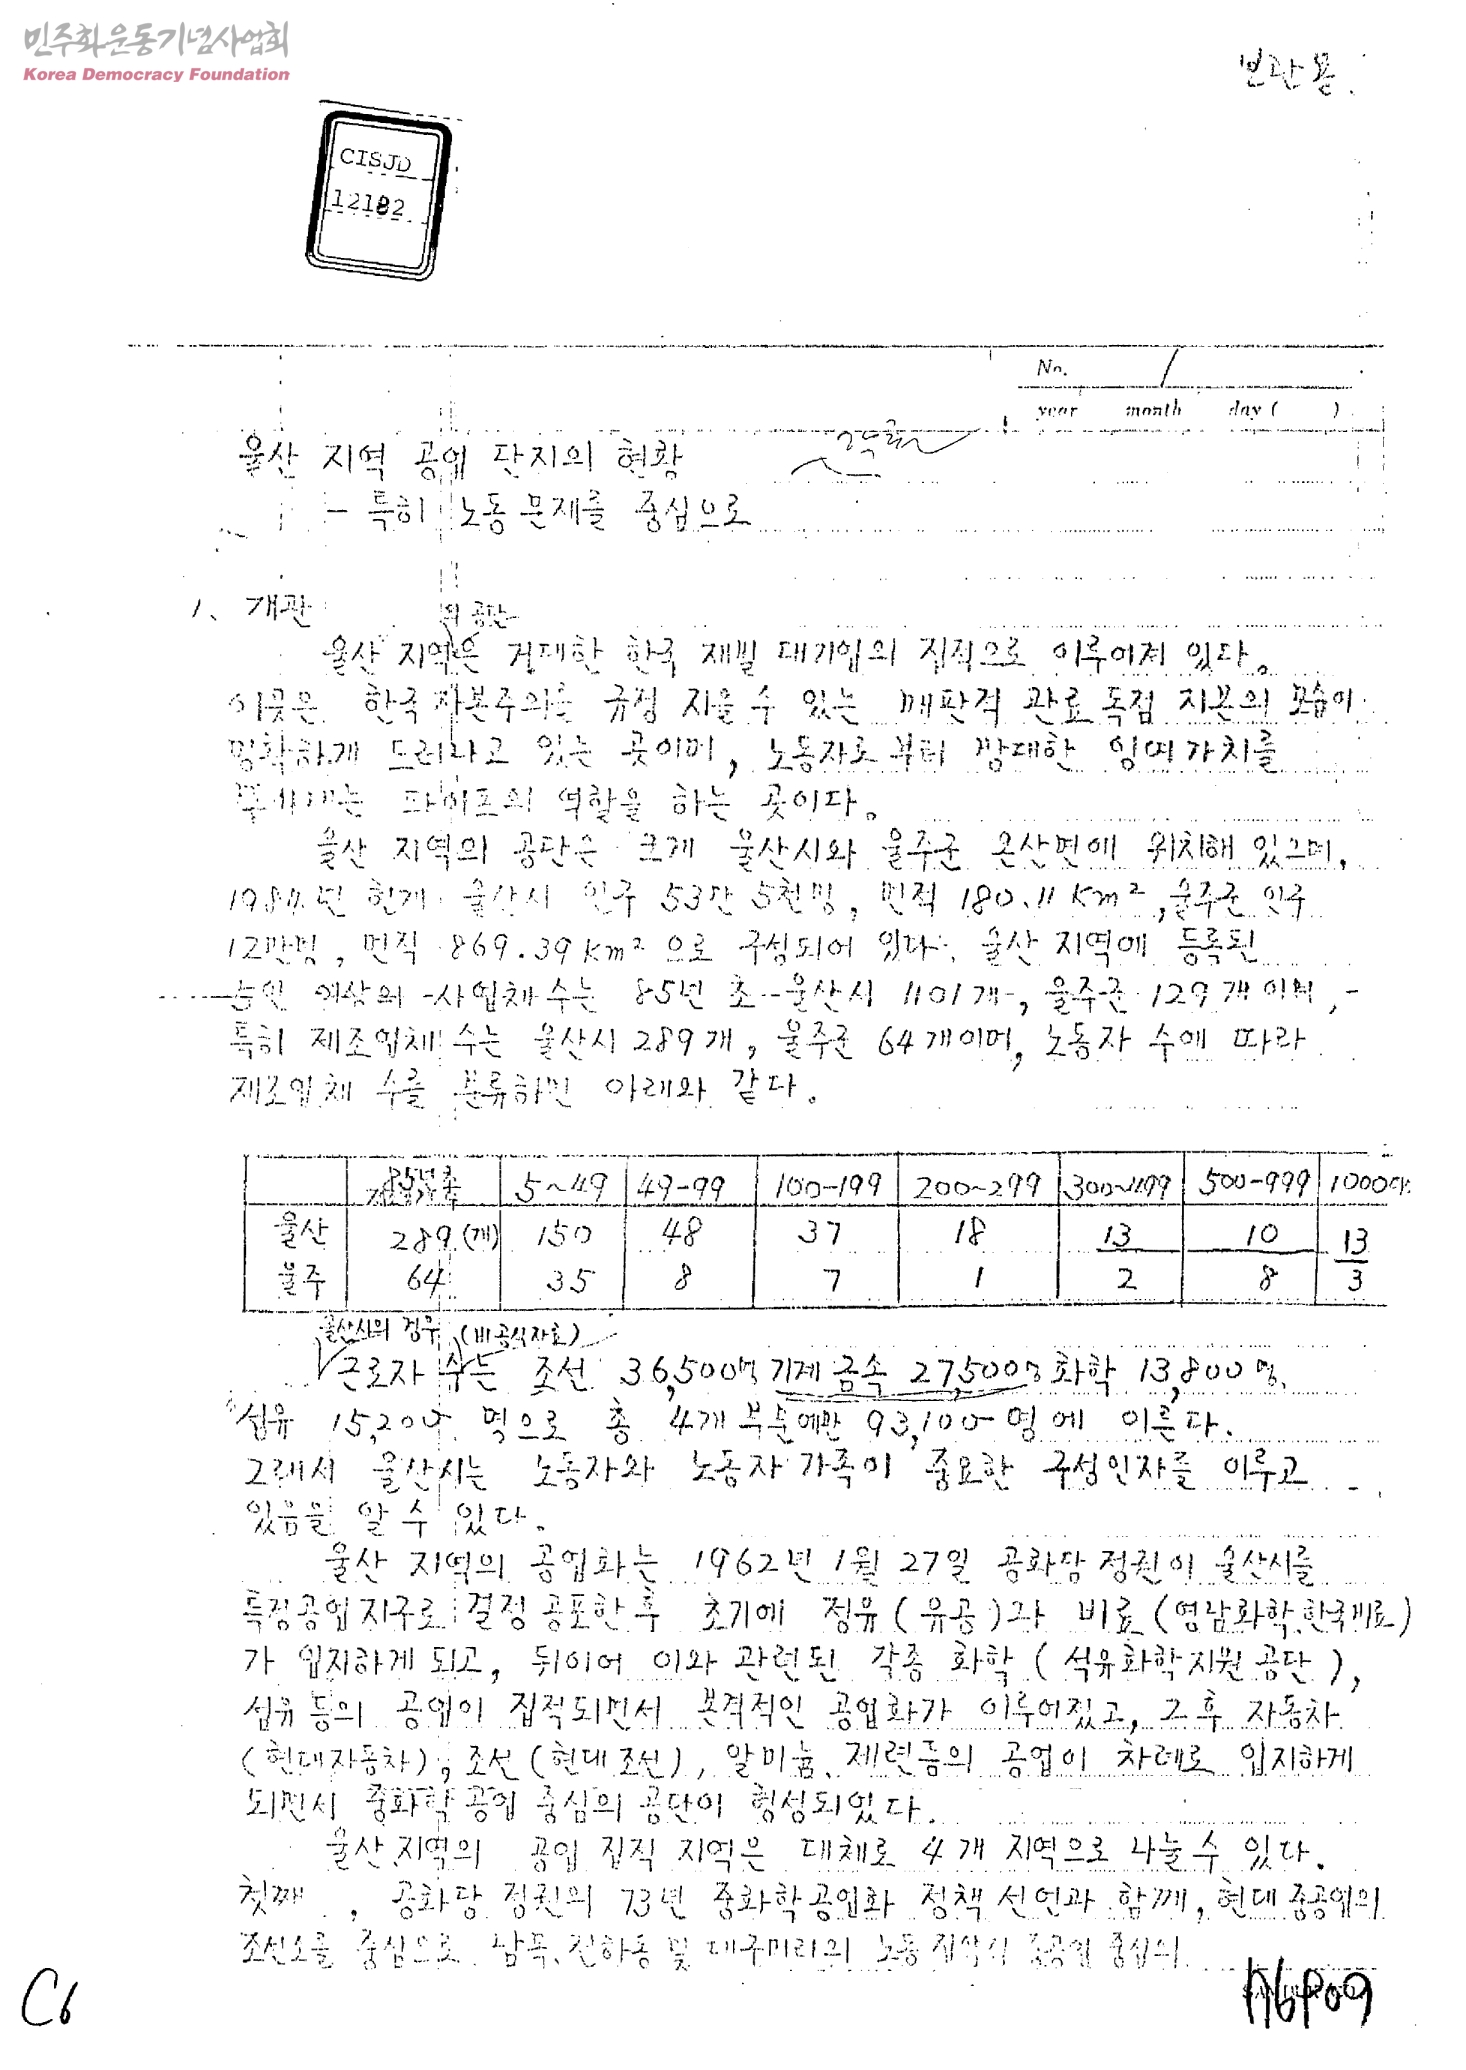 민주화운동기념사업회
Korea Democracy Foundation
보관용.
CISJD
12182
No. /
year month day ( )
울산 지역 공업 단지의 현황
- 특히 노동문제를 중심으로
1. 개관
의 공단
울산 지역은 거대한 한국 재벌 대기업의 집적으로 이루어져 있다.
이곳은 한국자본주의를 규정 지을 수 있는 매판적 관료 독점 자본의 모습이
명확하게 드러나고 있는 곳이며, 노동자로부터 방대한 잉여가치를
파이프의 역할을 하는 곳이다.
울산 지역의 공단은 크게 울산시와 울주군 온산면에 위치해 있으며,
현재 울산시 인구 53만 5천명, 면적 180.11 Km², 울주군 인구
12만명, 면적 869.39 Km²으로 구성되어 있다. 울산 지역에 등록된
이상의 사업체수는 85년 초 울산시 1101개, 울주군 129개이며,
특히 제조업체 수는 울산시 289개, 울주군 64개이며, 노동자 수에 따라
제조업체 수를 분류하면 아래와 같다.
85년초 5~49 49-99 100-199 200~299 300~499 500-999 1000이상
울산 289(개) 150 48 37 18 13 10 13
울주 64 35 8 7 1 2 8 3
울산시의 경우 (비공식자료)
근로자 수는 조선 36,500명 기계 금속 27,500명 화학 13,800명,
섬유 15,200 명으로 총 4개 부문에만 93,100명에 이른다.
그래서 울산시는 노동자와 노동자 가족이 중요한 구성인자를 이루고
있음을 알 수 있다.
울산 지역의 공업화는 1962년 1월 27일 공화당 정권이 울산시를
특정공업지구로 결정 공포한 후 초기에 정유(유공)과 비료(영남화학.한국비료)
가 입지하게 되고, 뒤이어 이와 관련된 각종 화학(석유화학지원 공단),
섬유 등의 공업이 집적되면서 본격적인 공업화가 이루어졌고, 그후 자동차
(현대자동차), 조선(현대조선), 알미늄, 제련등의 공업이 차례로 입지하게
되면서 중화학 공업 중심의 공단이 형성되었다.
울산지역의 공업 집적 지역은 대체로 4개 지역으로 나눌 수 있다.
첫째, 공화당 정권의 73년 중화학공업화 정책 선언과 함께, 현대중공업의
조선소를 중심으로 남목, 전하동 및 대구미리의 노동 집약식 중공업 중심의
C6